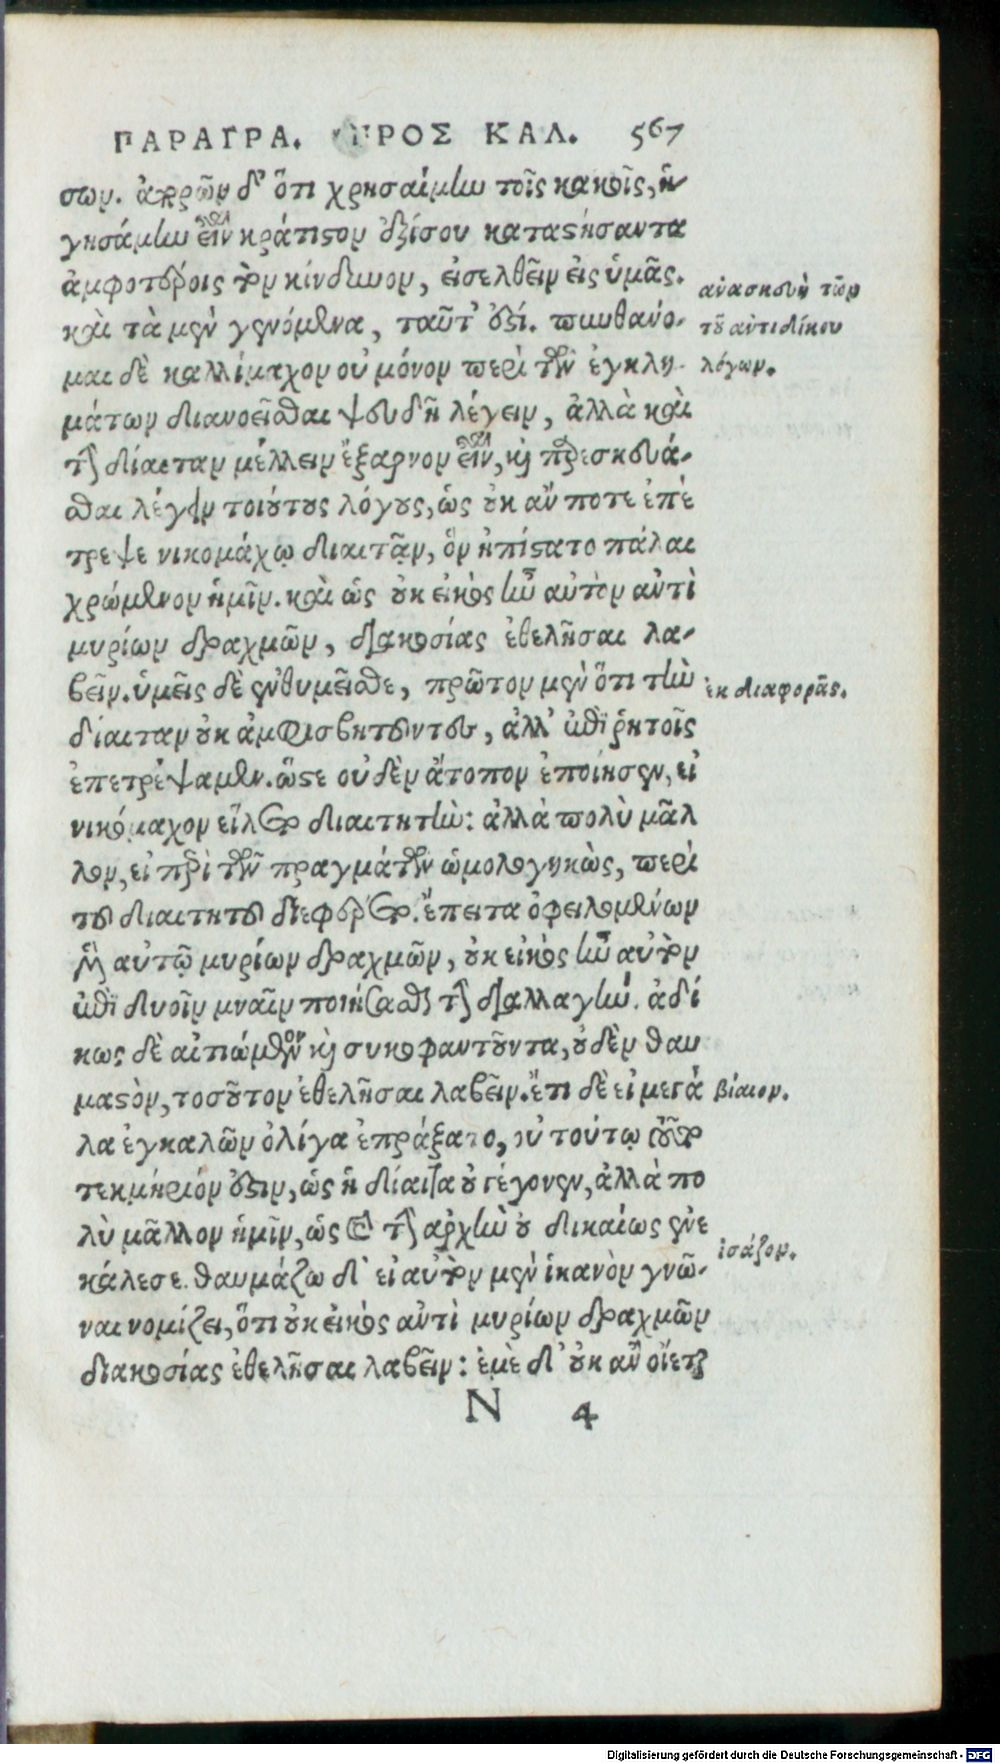 ΠΑΡΑΓΡΑ. ΠΡΟΣ ΚΑΛ. 567
σων. ἀπορῶν δ' ὅτι χρησαίμην τοῖς κακοῖς, ἡ
γησάμην εἶναι κράτιστον ἐξίσου καταστήσαντα
ἀμφοτέροις τὸν κίνδυνον, εἰσελθεῖν εἰς ὑμᾶς.
καὶ τὰ μὲν γενόμενα, ταῦτ' ἐστί. πυνθάνο-
μαι δὲ καλλίμαχον οὐ μόνον περὶ τῶν ἐγκλη-
μάτων διανοεῖσθαι ψευδῆ λέγειν, ἀλλὰ καὶ
τὴν δίαιταν μέλλειν ἔξαρνον εἶναι, καὶ παρεσκευά-
σθαι λέγειν τοιούτους λόγους, ὡς οὐκ ἄν ποτε ἐπέ
τρεψε νικομάχῳ διαιτᾶν, ὃν ἠπίστατο πάλαι
χρώμενον ἡμῖν. καὶ ὡς οὐκ εἰκὸς ἦν αὐτὸν ἀντὶ
μυρίων δραχμῶν, διακοσίας ἐθελῆσαι λα-
βεῖν. ὑμεῖς δὲ ἐνθυμεῖσθε, πρῶτον μὲν ὅτι τὴν
δίαιταν οὐκ ἀμφισβητοῦντες, ἀλλ' ἐπὶ ῥητοῖς
ἐπετρέψαμεν. ὥστε οὐδὲν ἄτοπον ἐποίησεν, εἰ
νικόμαχον εἵλετο διαιτητὴν: ἀλλὰ πολὺ μᾶλ
λον, εἰ περὶ τῶν πραγμάτων ὡμολογηκὼς, περὶ
τοῦ διαιτητοῦ διεφέρετο. ἔπειτα ὀφειλομένων
μὲν αὐτῷ μυρίων δραχμῶν, οὐκ εἰκὸς ἦν αὐτὸν
ἐπὶ δυοῖν μναῖν ποιήσασθαι τὴν διαλλαγήν. ἀδί
κως δὲ αἰτιώμενον καὶ συκοφαντοῦντα, οὐδὲν θαυ
μαστὸν, τοσοῦτον ἐθελῆσαι λαβεῖν. ἔτι δὲ εἰ μεγά
λα ἐγκαλῶν ὀλίγα ἐπράξατο, οὐ τούτῳ τοῦτο
τεκμήριόν ἐστιν, ὡς ἡ δίαιτα οὐ γέγονεν, ἀλλὰ πο
λὺ μᾶλλον ἡμῖν, ὡς καὶ τὴν ἀρχὴν οὐ δικαίως ἐνε
κάλεσε. θαυμάζω δ' εἰ αὐτὸν μὲν ἱκανὸν γνῶ-
ναι νομίζει, ὅτι οὐκ εἰκὸς ἀντὶ μυρίων δραχμῶν
διακοσίας ἐθελῆσαι λαβεῖν: ἐμὲ δ' οὐκ ἂν οἴεται
N 4
ἀνασκευὴ τῶν
τοῦ ἀντιδίκου
λόγων.
ἐκ διαφορᾶς.
βίαιον.
ἰσάζον.
Digitalisierung gefördert durch die Deutsche Forschungsgemeinschaft - DFG